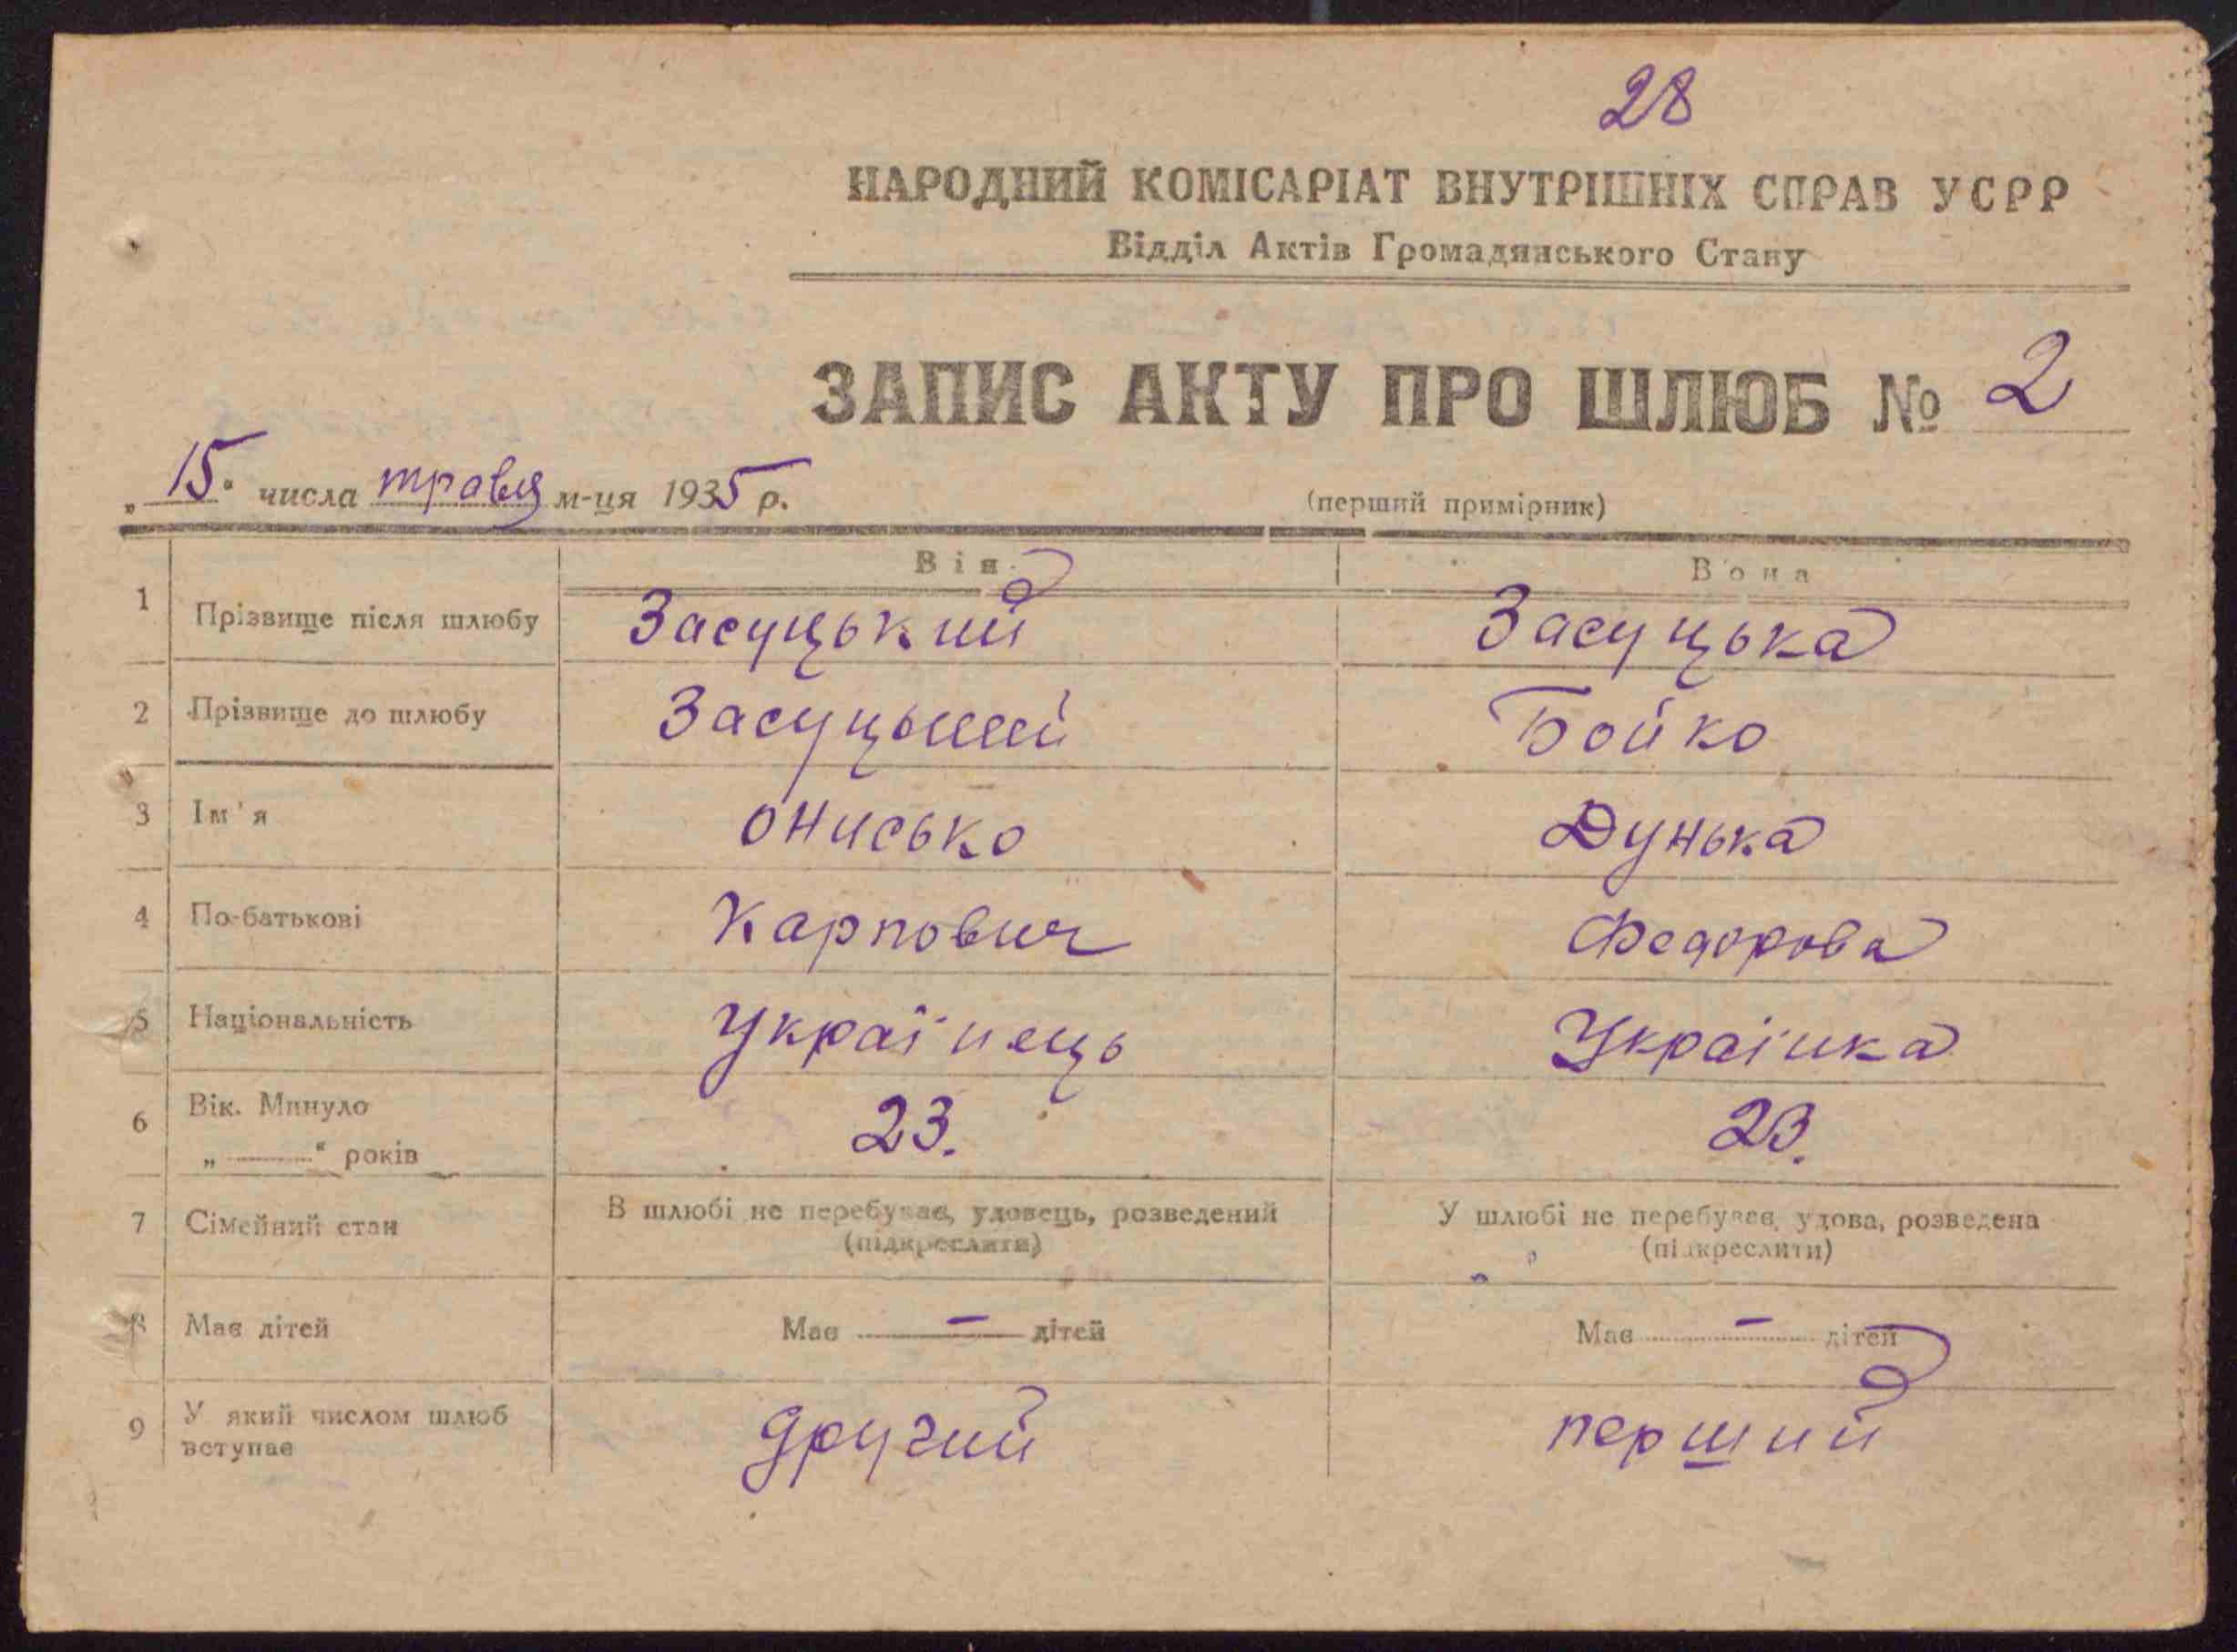 28
НАРОДНИЙ КОМІСАРІАТ ВНУТРІШНІХ СПРАВ УСРР
Відділ Актів Громадянського Стану
ЗАПИС АКТУ ПРО ШЛЮБ № 2
„15“ числа травня м-ця 1935 р. (перший примірник)
Він Вона
1 Прізвище після шлюбу Засуцький Засуцька
2 Прізвище до шлюбу Засуцький Бойко
3 Ім'я Онисько Дунька
4 По-батькові Карпович Федорова
5 Національність Українець Українка
6 Вік. Минуло 23. 23.
„ “ років
7 Сімейний стан В шлюбі не перебуває, удовець, розведений У шлюбі не перебуває, удова, розведена
(підкреслити) (підкреслити)
8 Має дітей Має – дітей Має – дітей
9 У який числом шлюб другий перший
вступає